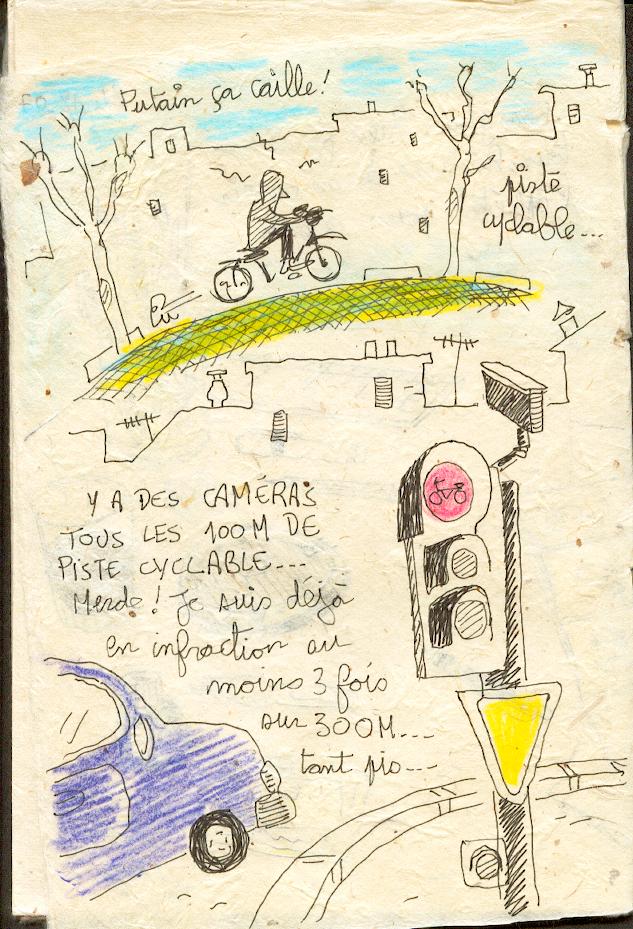 Putain ça caille!
piste
cyclable...
Y A DES CAMÉRAS
TOUS LES 100M DE
PISTE CYCLABLE...
Merde! Je suis déjà
en infraction au
moins 3 fois
sur 300M...
tant pis...